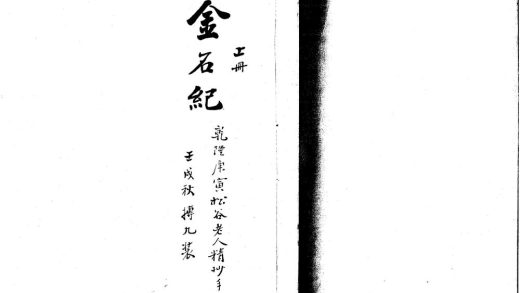 金石紀
上冊
乾隆庚寅松谷老人精抄本
壬戌秋搏九裝